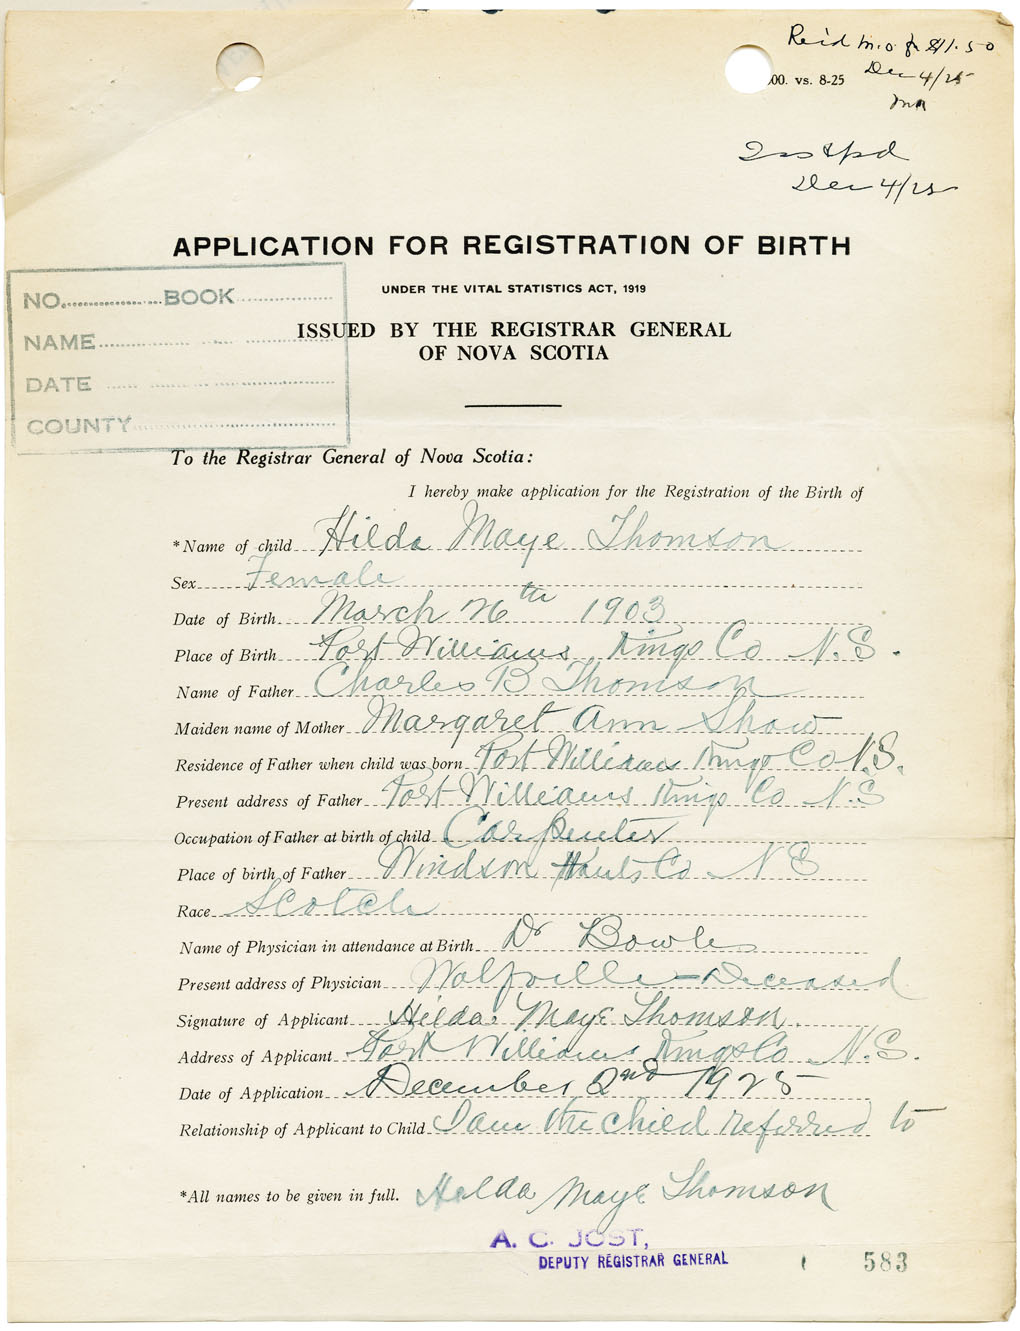 Rec'd m.o. for $1.50
00. vs. 8-25 Dec 4/25
Dec 4/25
APPLICATION FOR REGISTRATION OF BIRTH
UNDER THE VITAL STATISTICS ACT, 1919
ISSUED BY THE REGISTRAR GENERAL
OF NOVA SCOTIA
NO. BOOK
NAME
DATE
COUNTY
To the Registrar General of Nova Scotia:
I hereby make application for the Registration of the Birth of
*Name of child Hilda Maye Thomson
Sex Female
Date of Birth March 26th 1903
Place of Birth Port Williams Kings Co N.S.
Name of Father Charles B Thomson
Maiden name of Mother Margaret Ann Shaw
Residence of Father when child was born Port Williams Kings Co N.S.
Present address of Father Port Williams Kings Co N.S
Occupation of Father at birth of child Carpenter
Place of birth of Father Windson Hants Co N S
Race Scotch
Name of Physician in attendance at Birth Dr Bowles
Present address of Physician Wolfville - Deceased
Signature of Applicant Hilda Maye Thomson.
Address of Applicant Port Williams Kings Co N.S.
Date of Application December 2nd 1925
Relationship of Applicant to Child I am the child referred to
*All names to be given in full. Hilda Maye Thomson
A. C. JOST,
DEPUTY REGISTRAR GENERAL
583